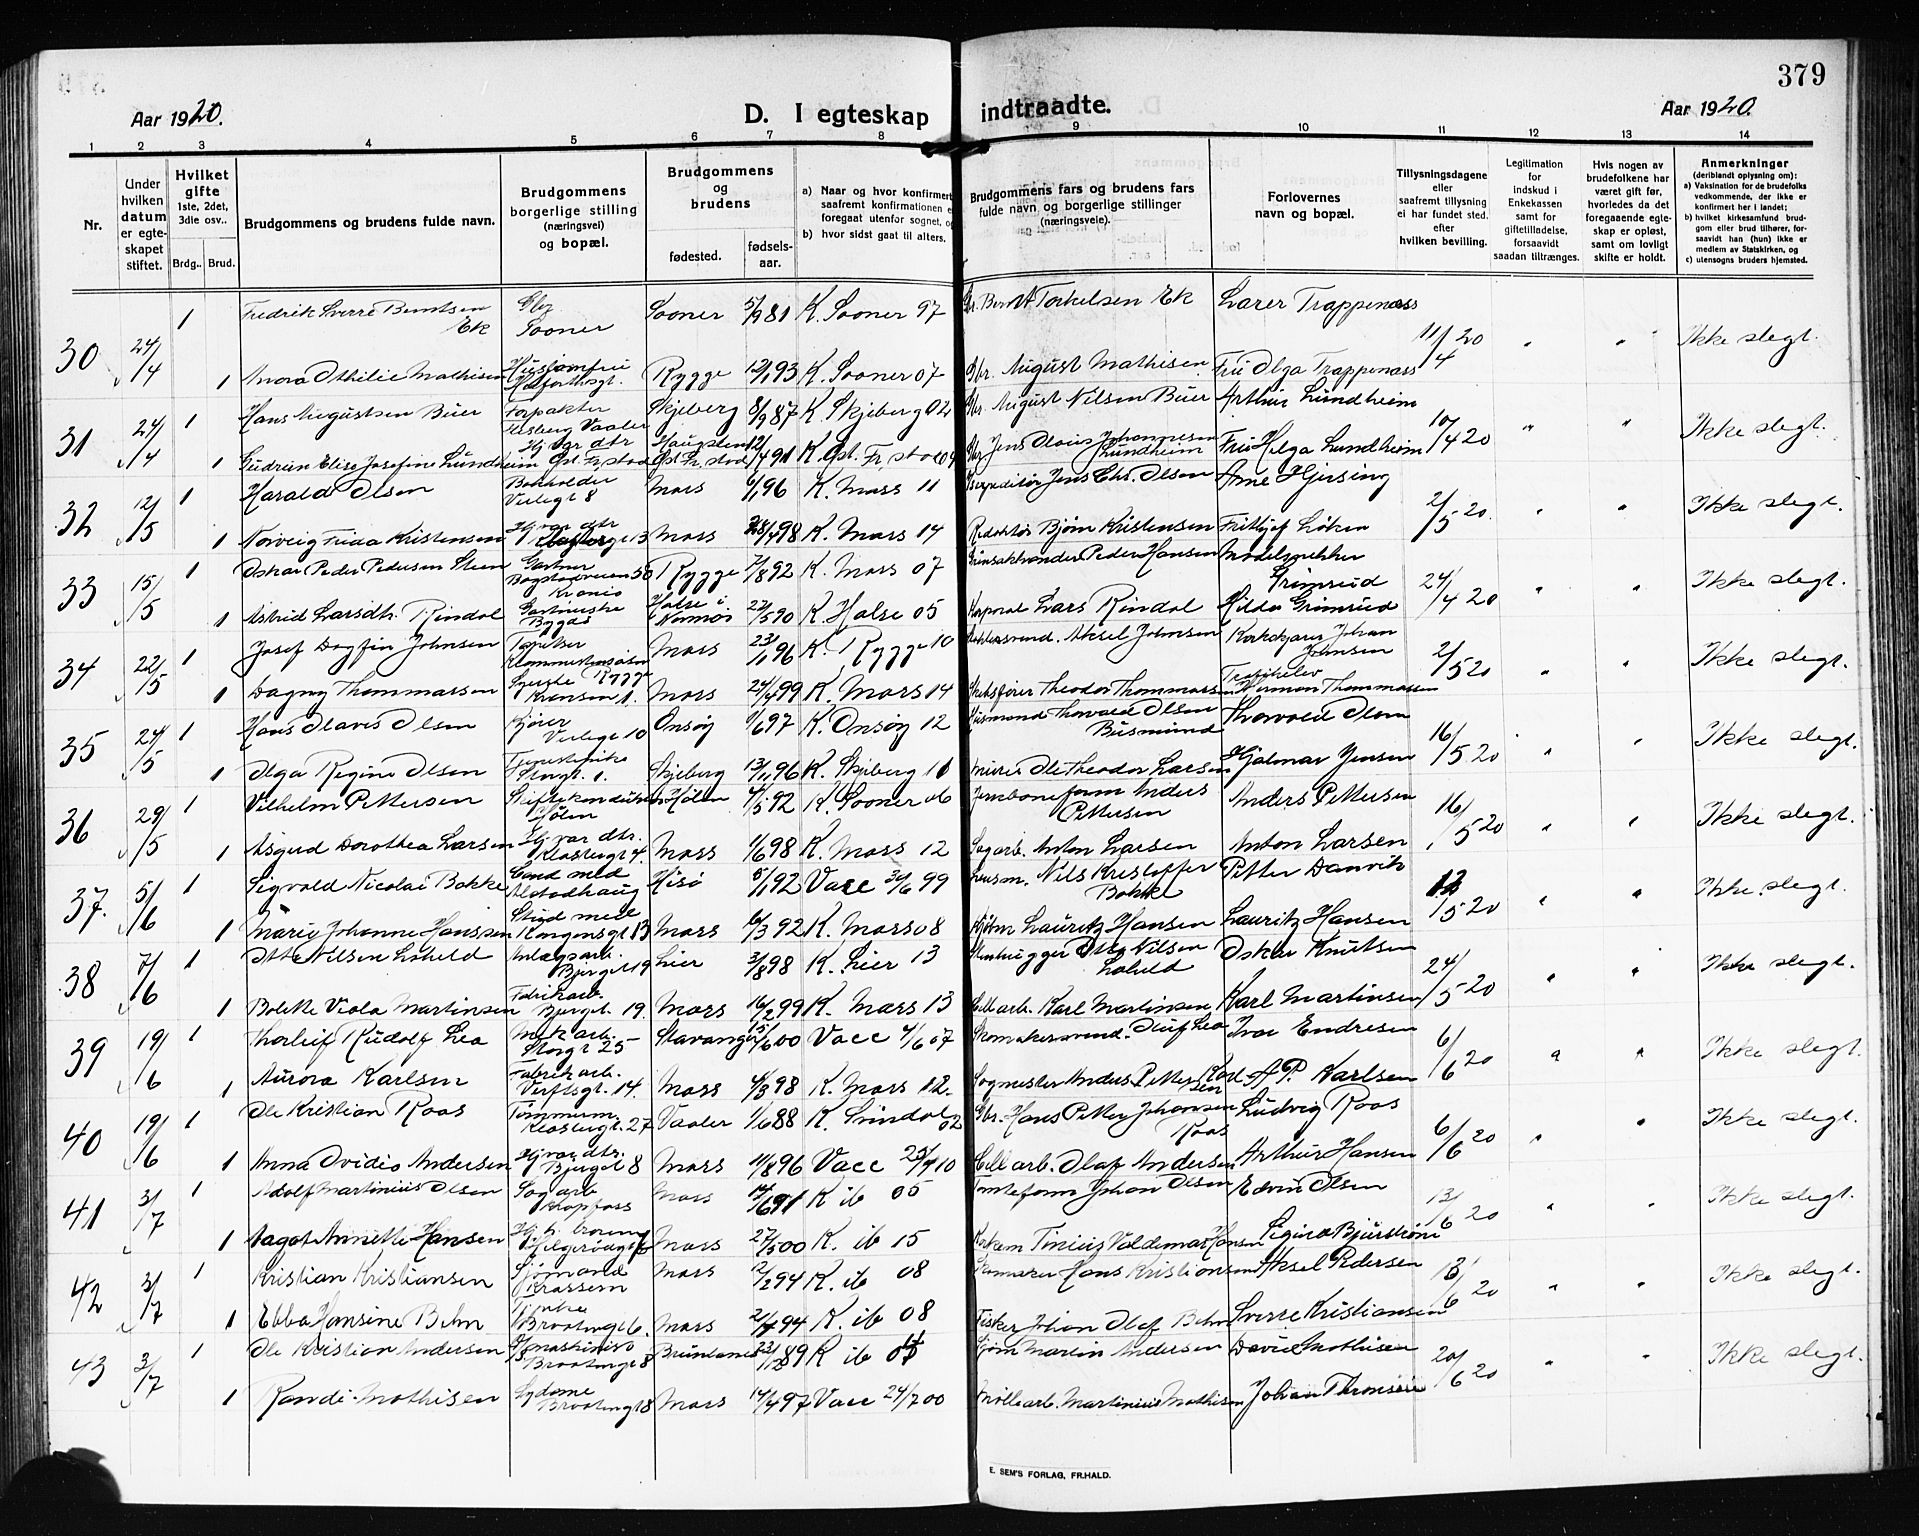 379
Aar 1920.
D. I egteskap indtraadte.
Aar 1920.
1 2 3 4 5 6 7 8 9 10 11 12 13 14
Nr.
Under hvilken datum er egteskapet stiftet.
Hvilket gifte 1ste, 2det, 3die osv..
Brdg.. Brud.
Brudgommens og brudens fulde navn.
Brudgommens borgerlige stilling (næringsvei) og bopæl.
Brudgommens og brudens
fødested.
fødsels-aar.
a) Naar og hvor konfirmert saafremt konfirmationen e foregaat utenfor sognet, og
b) hvor sidst gaat til alters.
Brudgommens fars og brudens fars fulde navn og borgerlige stillinger (næringsveie).
Forlovernes navn og bopæl.
Tillysningsdagene eller saafremt tillysning ei har fundet sted. efter hvilken bevilling.
Legitimation for indskud i Enkekassen samt for giftetilladelse, forsaavidt saadan tiltrænges.
Hvis nogen av brudefolkene har været gift før, hvorledes da det foregaaende egteskap er opløst, samt om lovlig skifte er holdt.
Anmerkninger (deriblandt oplysning om):
a) Vaksination for de brudefolks vedkommende, der ikke er konfirmert her i landet;
b) hvilket kirkesamfund brudgom eller brud tilhører, forsaavidt han (hun) ikke er medlem av Statskirken, og
c) utensogns bruders hjemsted.
30 24/4 1 Fredrik Sverre Berntsen Ek Gbg Sooner Sooner 5/9 81 K. Sooner 97 Gbr. Bernt Torkelsen Ek Lærer Trappenæss 11/4 20 " " Ikke slegt.
1 Anora Othilie Mathisen Rygge 93 K. Sooner 07 Gbr. August Mathisen Fru Olga Trappenæss
31 24/4 1 Hans Augustsen Buer Forpakter Vaaler Skjeberg 8/9 87 K. Skjeberg 02 Gbr. August Nilsen Buer Arthur Lundheim 10/4 20 " " Ikke slegt.
1 Gudrun Elise Josefine Lundheim Hj. vær. dtr Gst. Fr.stad Haugsten Gst. Fr.stad 12/4 91 K. Gst. Fr.stad Gbr Jens Olaus Johannesen Lundheim Fru Helga Lundheim
32 12/5 1 Harald Olsen Bokholder Verlegt 8 Moss 6/1 96 K. Moss 11 Expeditør Jens Chr. Olsen Arne Hjersing 2/5 20. " " Ikke slegt.
1 Norveig Frida Kristensen Hj. vær dtr 13 Moss 28/4 98 K. Moss 14 Redaktør Bjørn Kristensen Frithjof Løken
33 15/5 1 Oskar Peder Pedersen Steen Gartner Bogstadveien 50 Krania Rygge 7/8 92 K. Moss 07 Peder Hansen Modelsnekker Grimsrud 24/4 20 " " Ikke slegt.
1 Astrid Larsdtr. Rindal Bygdø Halse i Normør 22/5 90 K. Halse 05 Korporal Lars Rindal Hilda Grimsrud
34 22/5 1 Josef Dagfin Johnsen Rygge Moss 23/1 96 K. Rygge 10 Aksel Johnsen Johan Johnsen 2/5 20 " " Ikke slegt.
1 Dagny Thommassen Kransen 1. Moss 24/4 99 K. Moss 14 Skibsfører Theodor Thommassen Herman Thommassen
35 24/5 1 Hans Olavis Olsen Kjører Verlegt 10 Onsøy 1/6 97 K. Onsøy 12 Husmand Thorvald Olsen Busmund Thorvald Olsen 16/5 20 " " Ikke slegt.
1 Olga Regine Olsen Storgt. 1. Skjeberg 13/1 96 K. Skjeberg 11 Murer Ole Theodor Larsen Hjalmar Jensen
36 29/5 1 Vilhelm Pettersen Hølen Hølen 4/5 92 K. Sooner 06 Jernbaneform Anders Pettersen Anders Pettersen 16/5 20 " " Ikke slegt.
1 Asgerd Dorothea Larsen Hj vær dtr. Klostergt 4. Moss 1/6 98 K. Moss 12 Sagarb. Anton Larsen Anton Larsen
37. 5/6 1 Sigvald Nicolai Bakke Cand med Alstadhaug Hisø 5/1 92 Vacc 30/6 99 Lensm. Nils Kristoffer Bakke Petter Danvik 12/5 20 " " Ikke slegt.
1 Marie Johanne Hanssen Stud med Kongensgt 13 Moss 6/3 92 K. Moss 08 Kjøbm Lauritz Hansen Lauritz Hansen
38 7/6 1 Otto Nilsen Loheld Anlægsarb. Bjergt 19 Lier 3/8 98 K. Lier 13 Stenhugger Otto Nilsen Loheld Oskar Knutsen 24/5 20 " " Ikke slegt.
1 Bolette Viola Martinsen Fabrikarb. Bjergt. 19. Moss 16/2 99 K. Moss 13 Cell arb. Karl Martinsen Karl Martinsen
39 19/6 1 Thorleif Rudolf Lea Mek arb. Storgt 25 Stavanger 15/6 00 Vacc 4/6 07 Skomakersvend. Oluf Lea Ivar Endresen 6/6 20 " " Ikke slegt.
1 Aurora Karlsen Fabrikarb. Verftsgt. 14. Moss 4/8 98 K. Moss 12. Sagmester Anders Petter Karlsen A. P. Karlsen
40 19/6 1 Ole Kristian Roos Tømmerm. Klostergt. 27 Vaaler 1/6 88 K. Svindal 02 Gbr. Hans Petter Johansen Roos Ludvig Roos 6/6 20 " " Ikke slegt.
1 Anna Ovidia Andersen Hj vær dtr. Bjergt 8 Moss 11/8 96 Vacc 23/9 10 Cell arb. Olaf Andersen Arthur Hansen
41 3/7 1 Adolf Martinius Olsen Sag arb Krapfoss Moss 14/6 91 K ib 05 Tomteform Johan Olsen Edvin Olsen 13/6 20 " " Ikke slegt.
1 Aagot Annette Hansen Helgerødgt Moss 27/5 00 K. ib 15 Tinius Valdemar Hansen Signe Bjurstrøm
42 3/7 1 Kristian Kristiansen Sjømand Krossern Moss 2/2 94 K. ib 08 Skomaker Hans Kristiansen Aksel Pedersen 13/6 20 " " Ikke slegt.
1 Ebba Hansine Behn Braatengt 6. Moss 24/7 94 K. ib 08 Fisker Johan Olaf Behn Sverre Kristiansen
43 3/7 1 Ole Kristian Andersen Braatengt 8 Brunlanes 23/12 89 K ib Sjøm Martin Andersen David Mathisen 20/6 20 " " Ikke slegt.
1 Randi Mathisen Sydame Braatengt 8 Moss 14/4 97 Vacc 24/7 00 Møllearb. Martinius Mathisen Johan Thronsen
E. SEM'S FORLAG, FR.HALD.